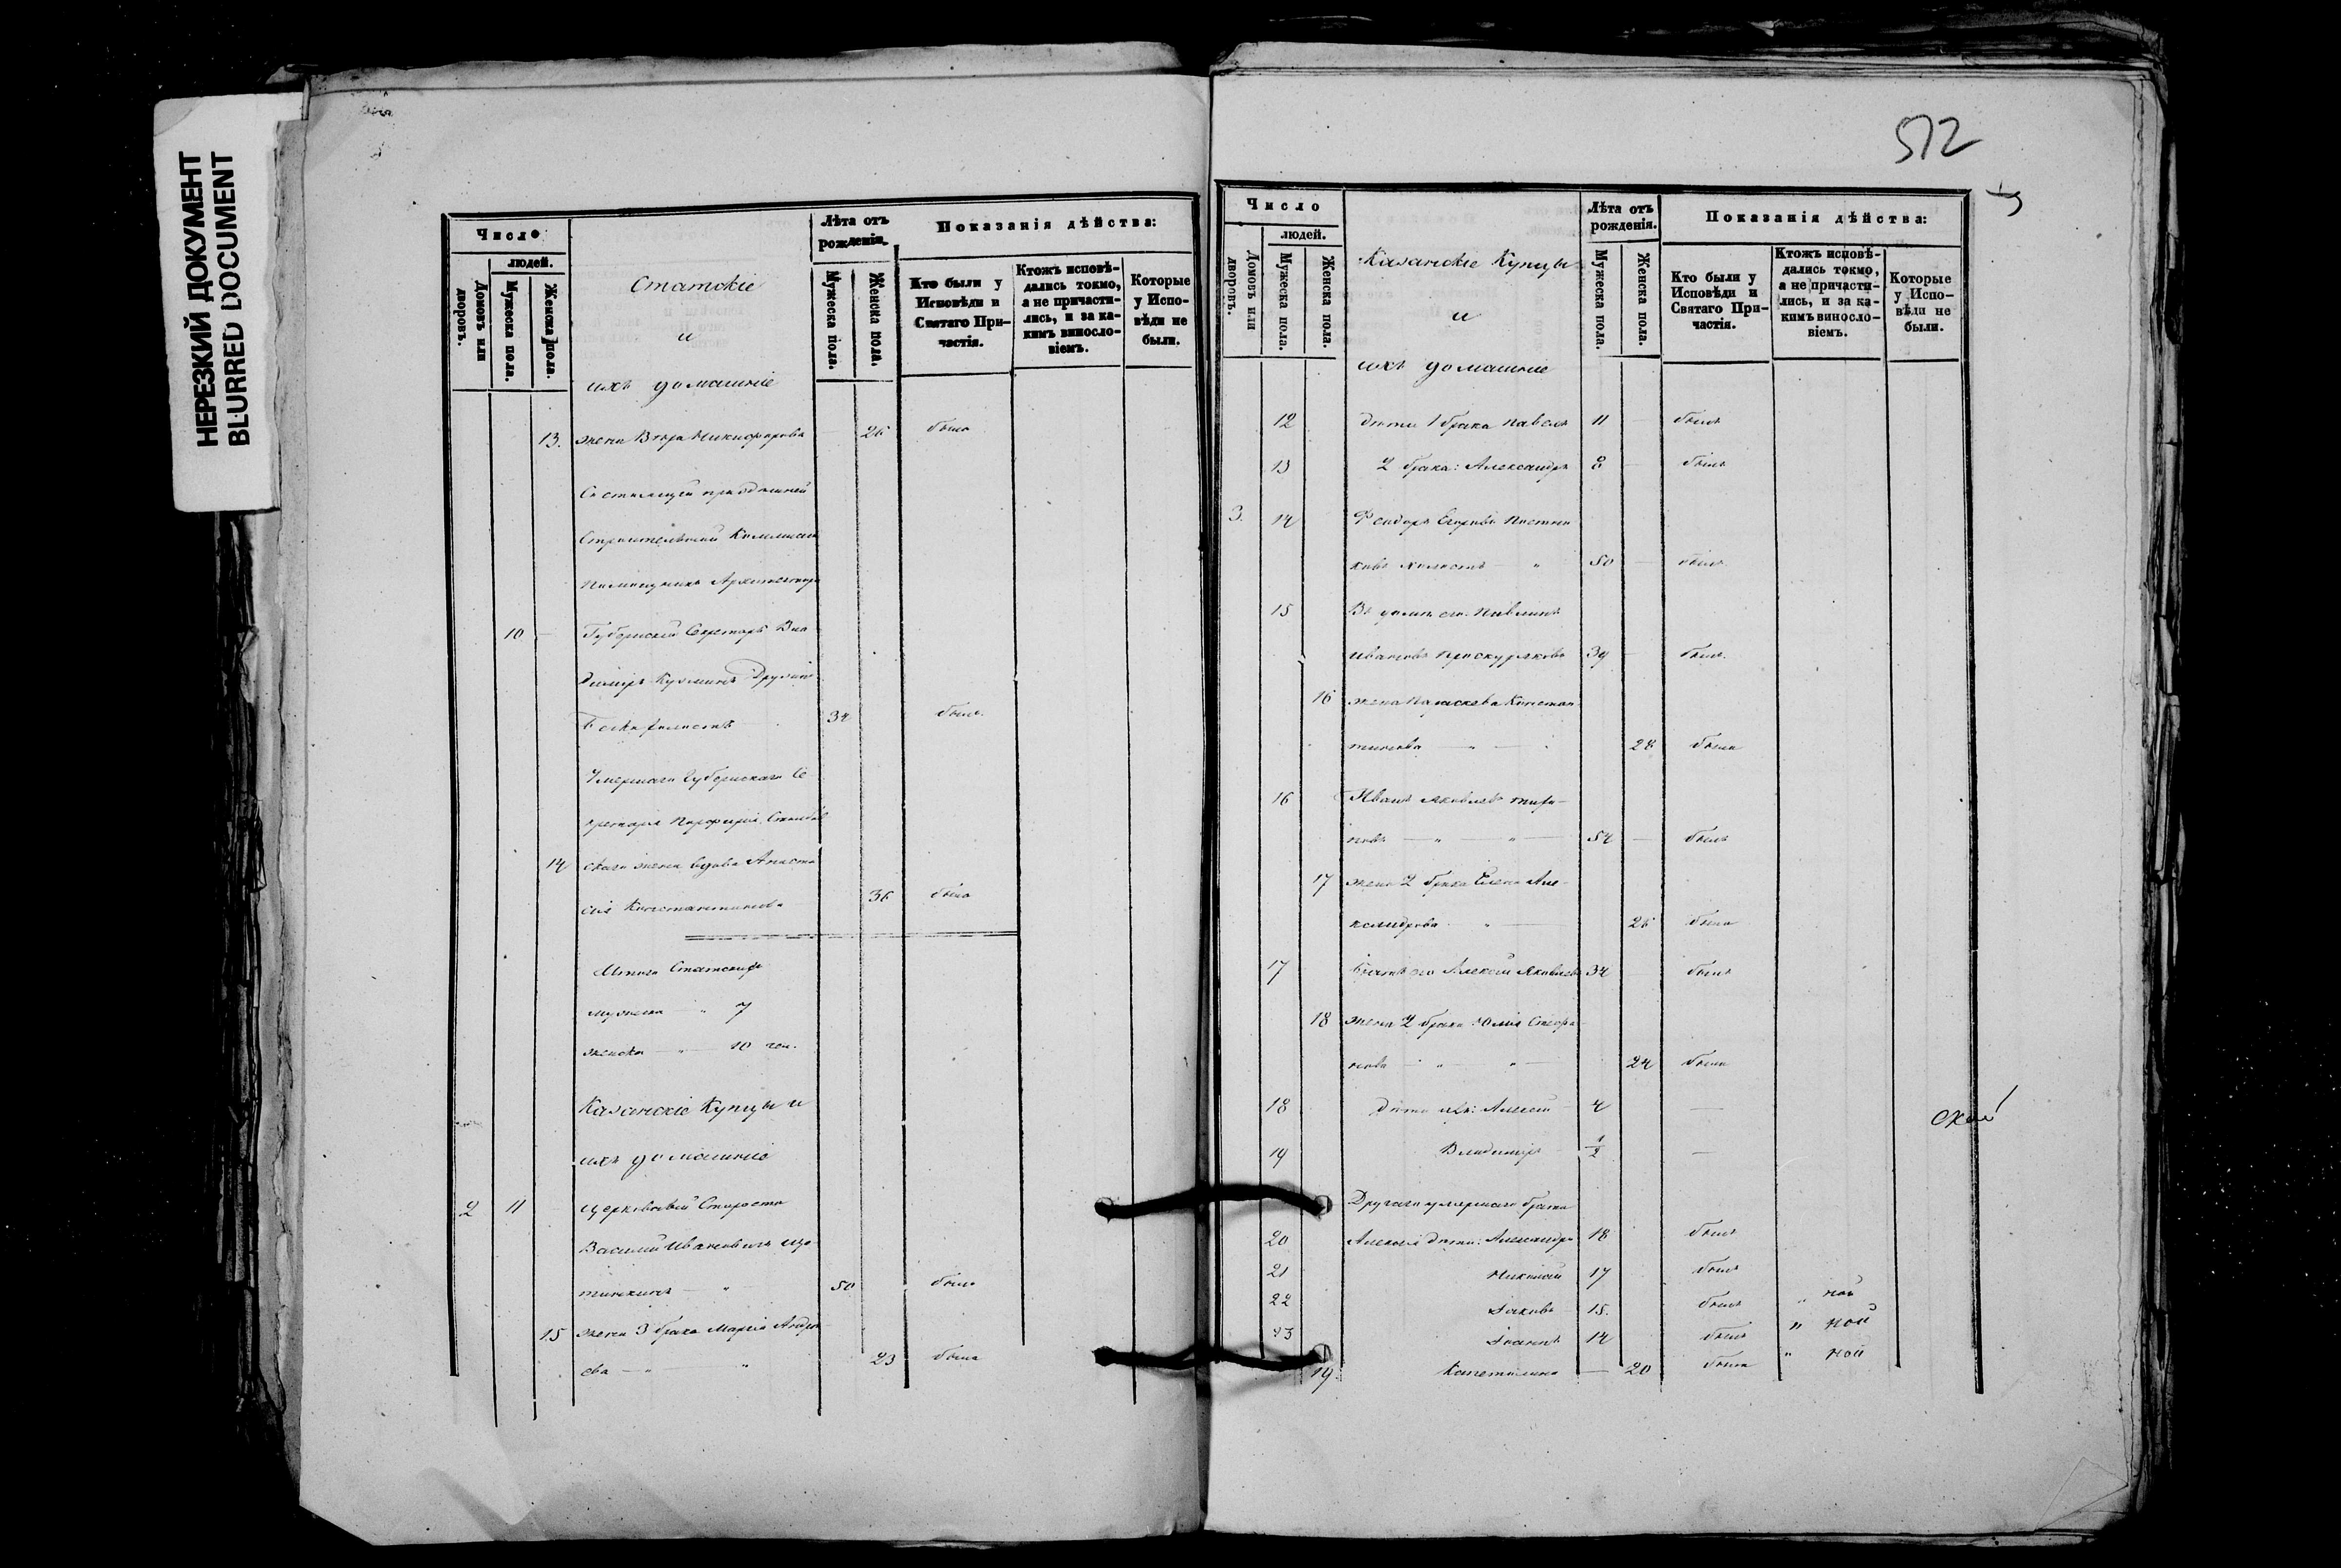 НЕРЕЗКИЙ ДОКУМЕНТ
BLURRED DOCUMENT
Число
людей.
Домовъ или дворовъ.
Мужеска пола.
Женска пола.
Статскіе
и
ихъ домашніе
Лѣта отъ рожденія.
Мужеска пола.
Женска пола.
Показанія дѣйства:
Кто были у Исповѣди и Святаго Причастія.
Ктожъ исповѣдались токмо, а не причастились, и за какимъ винословіемъ.
Которые у Исповѣди не были.
13. жена Вѣра Никифорова — 26 была
Состоящей при
Строительной Коммисіи
Помощникъ Архитектора
10 — Губернскій Секретарь Вла-
диміръ Кузминъ
холостъ 34 былъ.
Умершаго Губернскаго Се-
кретаря Порфирія
14 жена вдова Анаста-
сія Константинова 36 была
Итого Статскихъ
мужеска — " 7
женска — " — 10 чел.
Казанскіе Купцы и
ихъ домашніе
2 11 Церковный Староста
Василій Ивановичъ Ще-
тинкинъ — " 50 былъ
15 жена 3 брака Марія Андре-
ева — " — " 23 была
572
Число
людей.
Домовъ или дворовъ.
Мужеска пола.
Женска пола.
Казанскіе Купцы
и
ихъ домашніе
Лѣта отъ рожденія.
Мужеска пола.
Женска пола.
Показанія дѣйства:
Кто были у Исповѣди и Святаго Причастія.
Ктожъ исповѣдались токмо, а не причастились, и за какимъ винословіемъ.
Которые у Исповѣди не были.
12 дѣти 1 брака Павелъ 11 — былъ
13 2 брака: Александръ 8 — былъ
3. 14 Феодоръ Егоровъ Постни-
ковъ холостъ — " 50 — былъ
15 Въ домѣ его Павлинъ
Ивановъ Проскуряковъ 39 — былъ.
16 жена Параскева Констан-
тинова — " — 28 была
16 Иванъ Яковлевъ
новъ — " — " — 54 — былъ
17 жена 2 брака Елена Але-
ксандрова " — 26 была
17 Братъ его Алексѣй Яковлевъ 34 былъ
18 жена 2 брака Юлія Стефа-
нова — " — " — 24 была
18 дѣти ихъ: Алексѣй — 4 —
19 Владиміръ 1/2 —
Другаго умершаго брата
20 Алексѣя дѣти: Александръ 18 былъ
21 Николай 17 былъ
22 Іаковъ 15. былъ " ной
23 Іоаннъ 14 былъ " ной
19. Капетолина — 20 была " ной